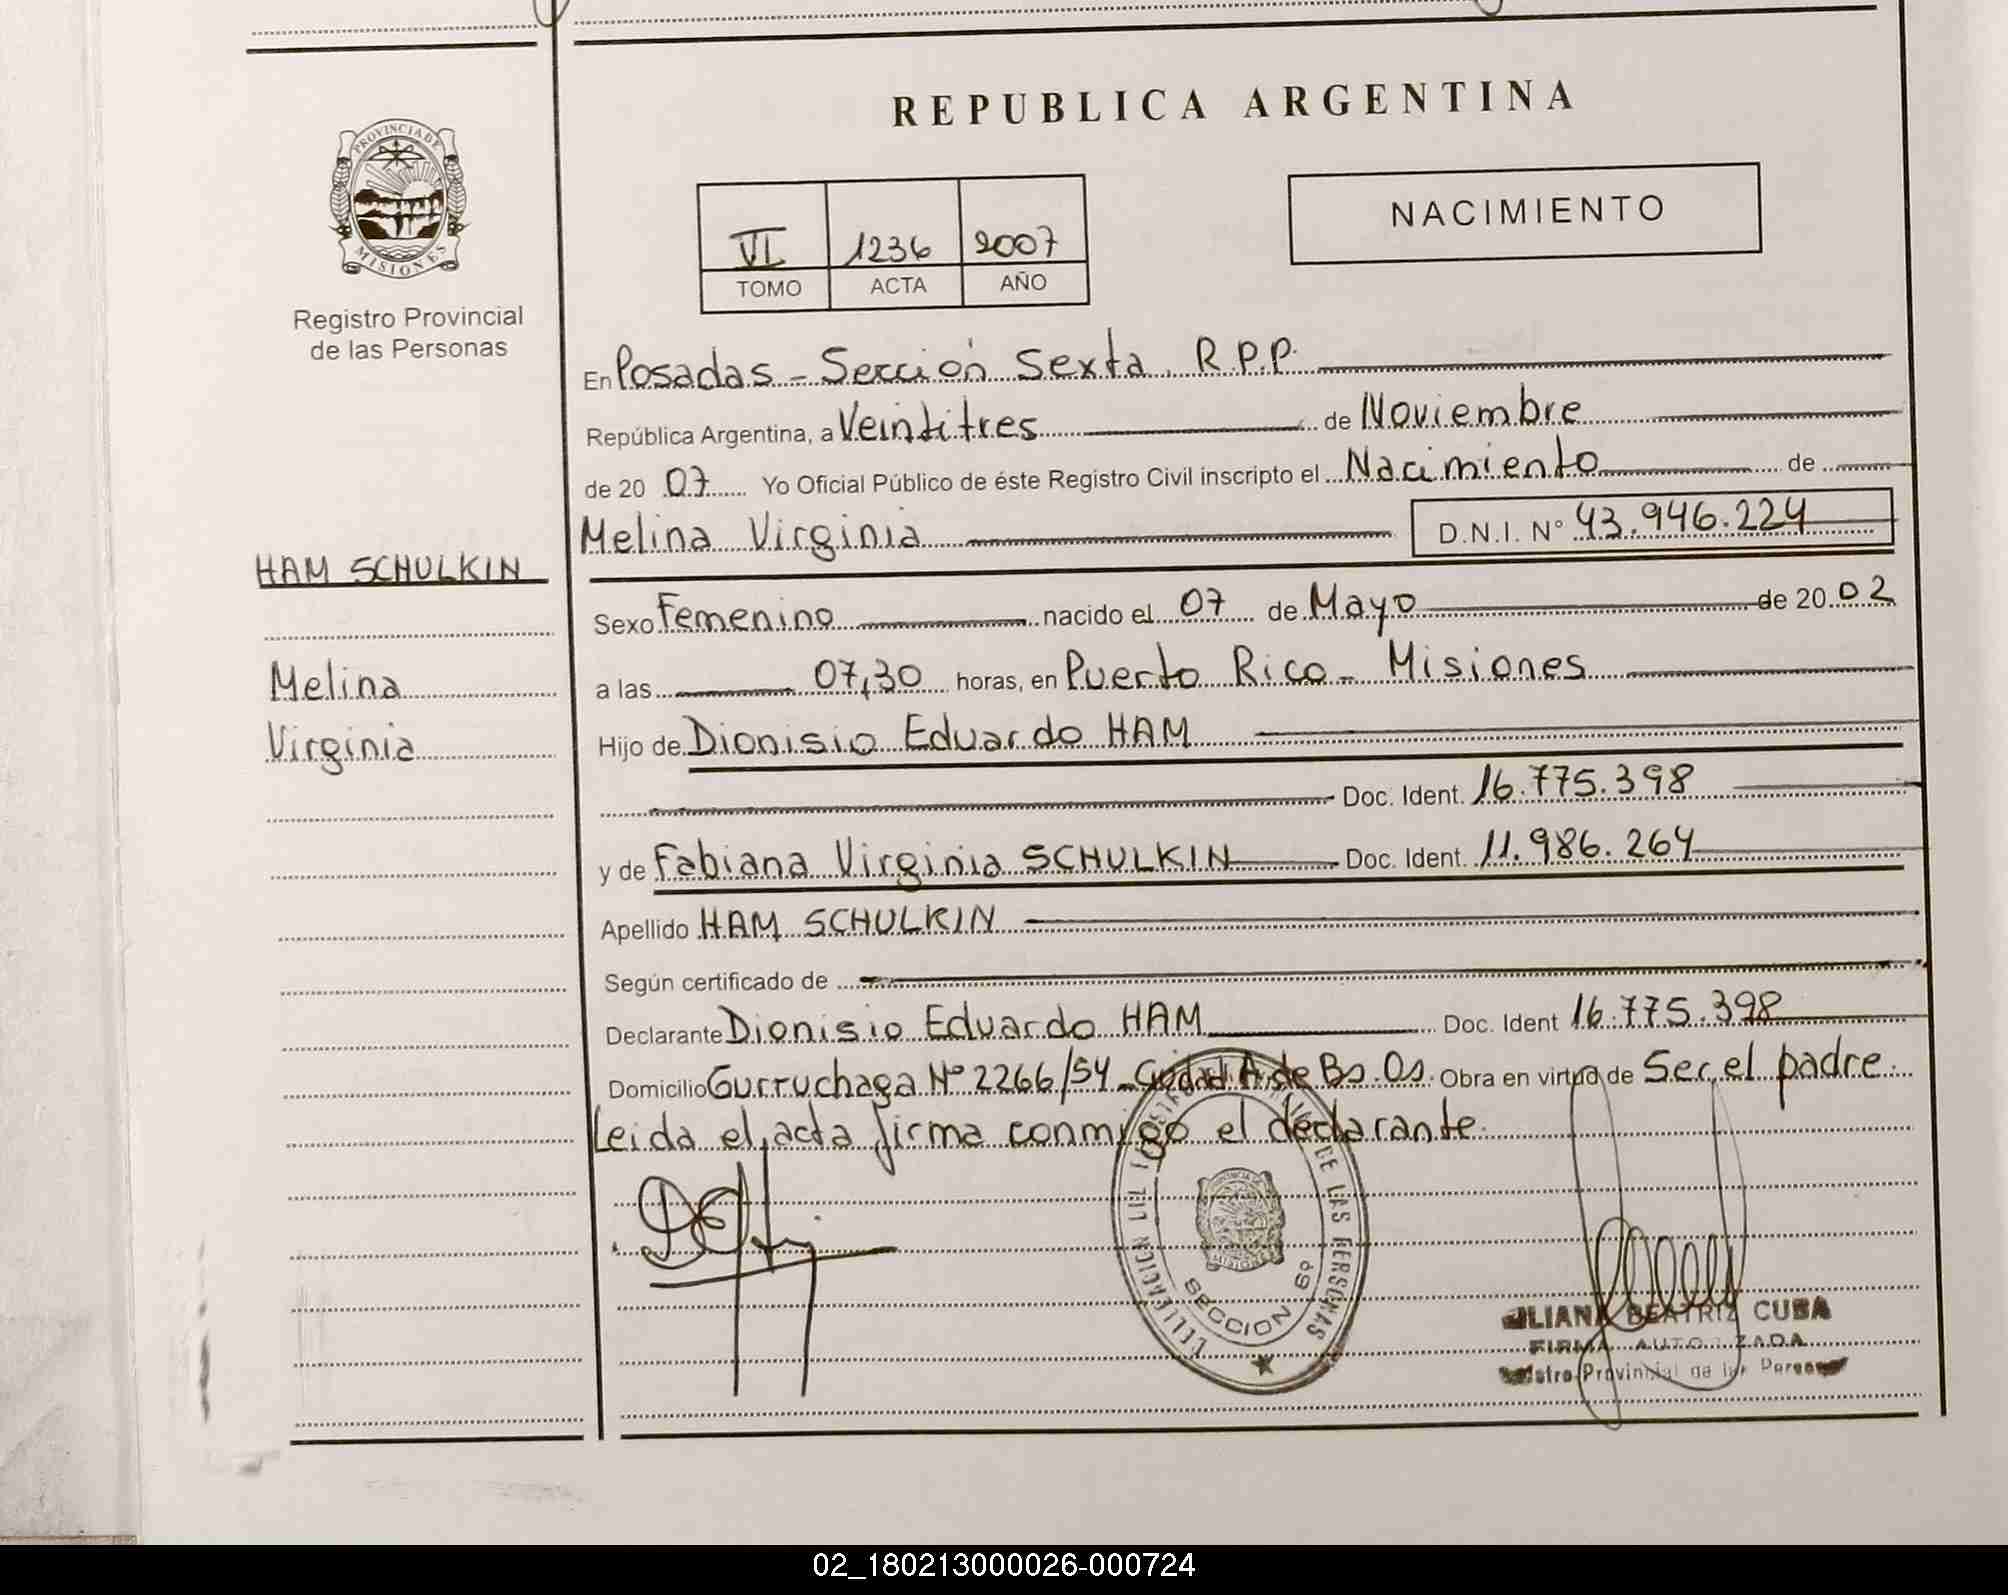 REPUBLICA ARGENTINA
PROVINCIA DE
MISIONES
Registro Provincial
de las Personas
NACIMIENTO
VI 1236 2007
TOMO ACTA AÑO
En Posadas - Sección Sexta. R.P.P.
República Argentina, a Veintitres de Noviembre
de 20 07 Yo Oficial Público de éste Registro Civil inscripto el Nacimiento de
Melina Virginia D.N.I. N° 43.946.224
HAM SCHULKIN
Sexo Femenino nacido el 07 de Mayo de 20 02
Melina
a las 07,30 horas, en Puerto Rico - Misiones
Virginia
Hijo de Dionisio Eduardo HAM
Doc. Ident. 16.775.398
y de Fabiana Virginia SCHULKIN Doc. Ident. 11.986.264
Apellido HAM SCHULKIN
Según certificado de
Declarante Dionisio Eduardo HAM Doc. Ident 16.775.398
Domicilio Gurruchaga N° 2266/54 - Ciudad A. de Bs. As. Obra en virtud de Ser el padre.
Leida el acta firma conmigo el declarante.
DE LAS PERSONAS
SECCION 6º
BEATRIZ CUBA
FIRMA AUTORIZADA
Provincial de las
02_180213000026-000724